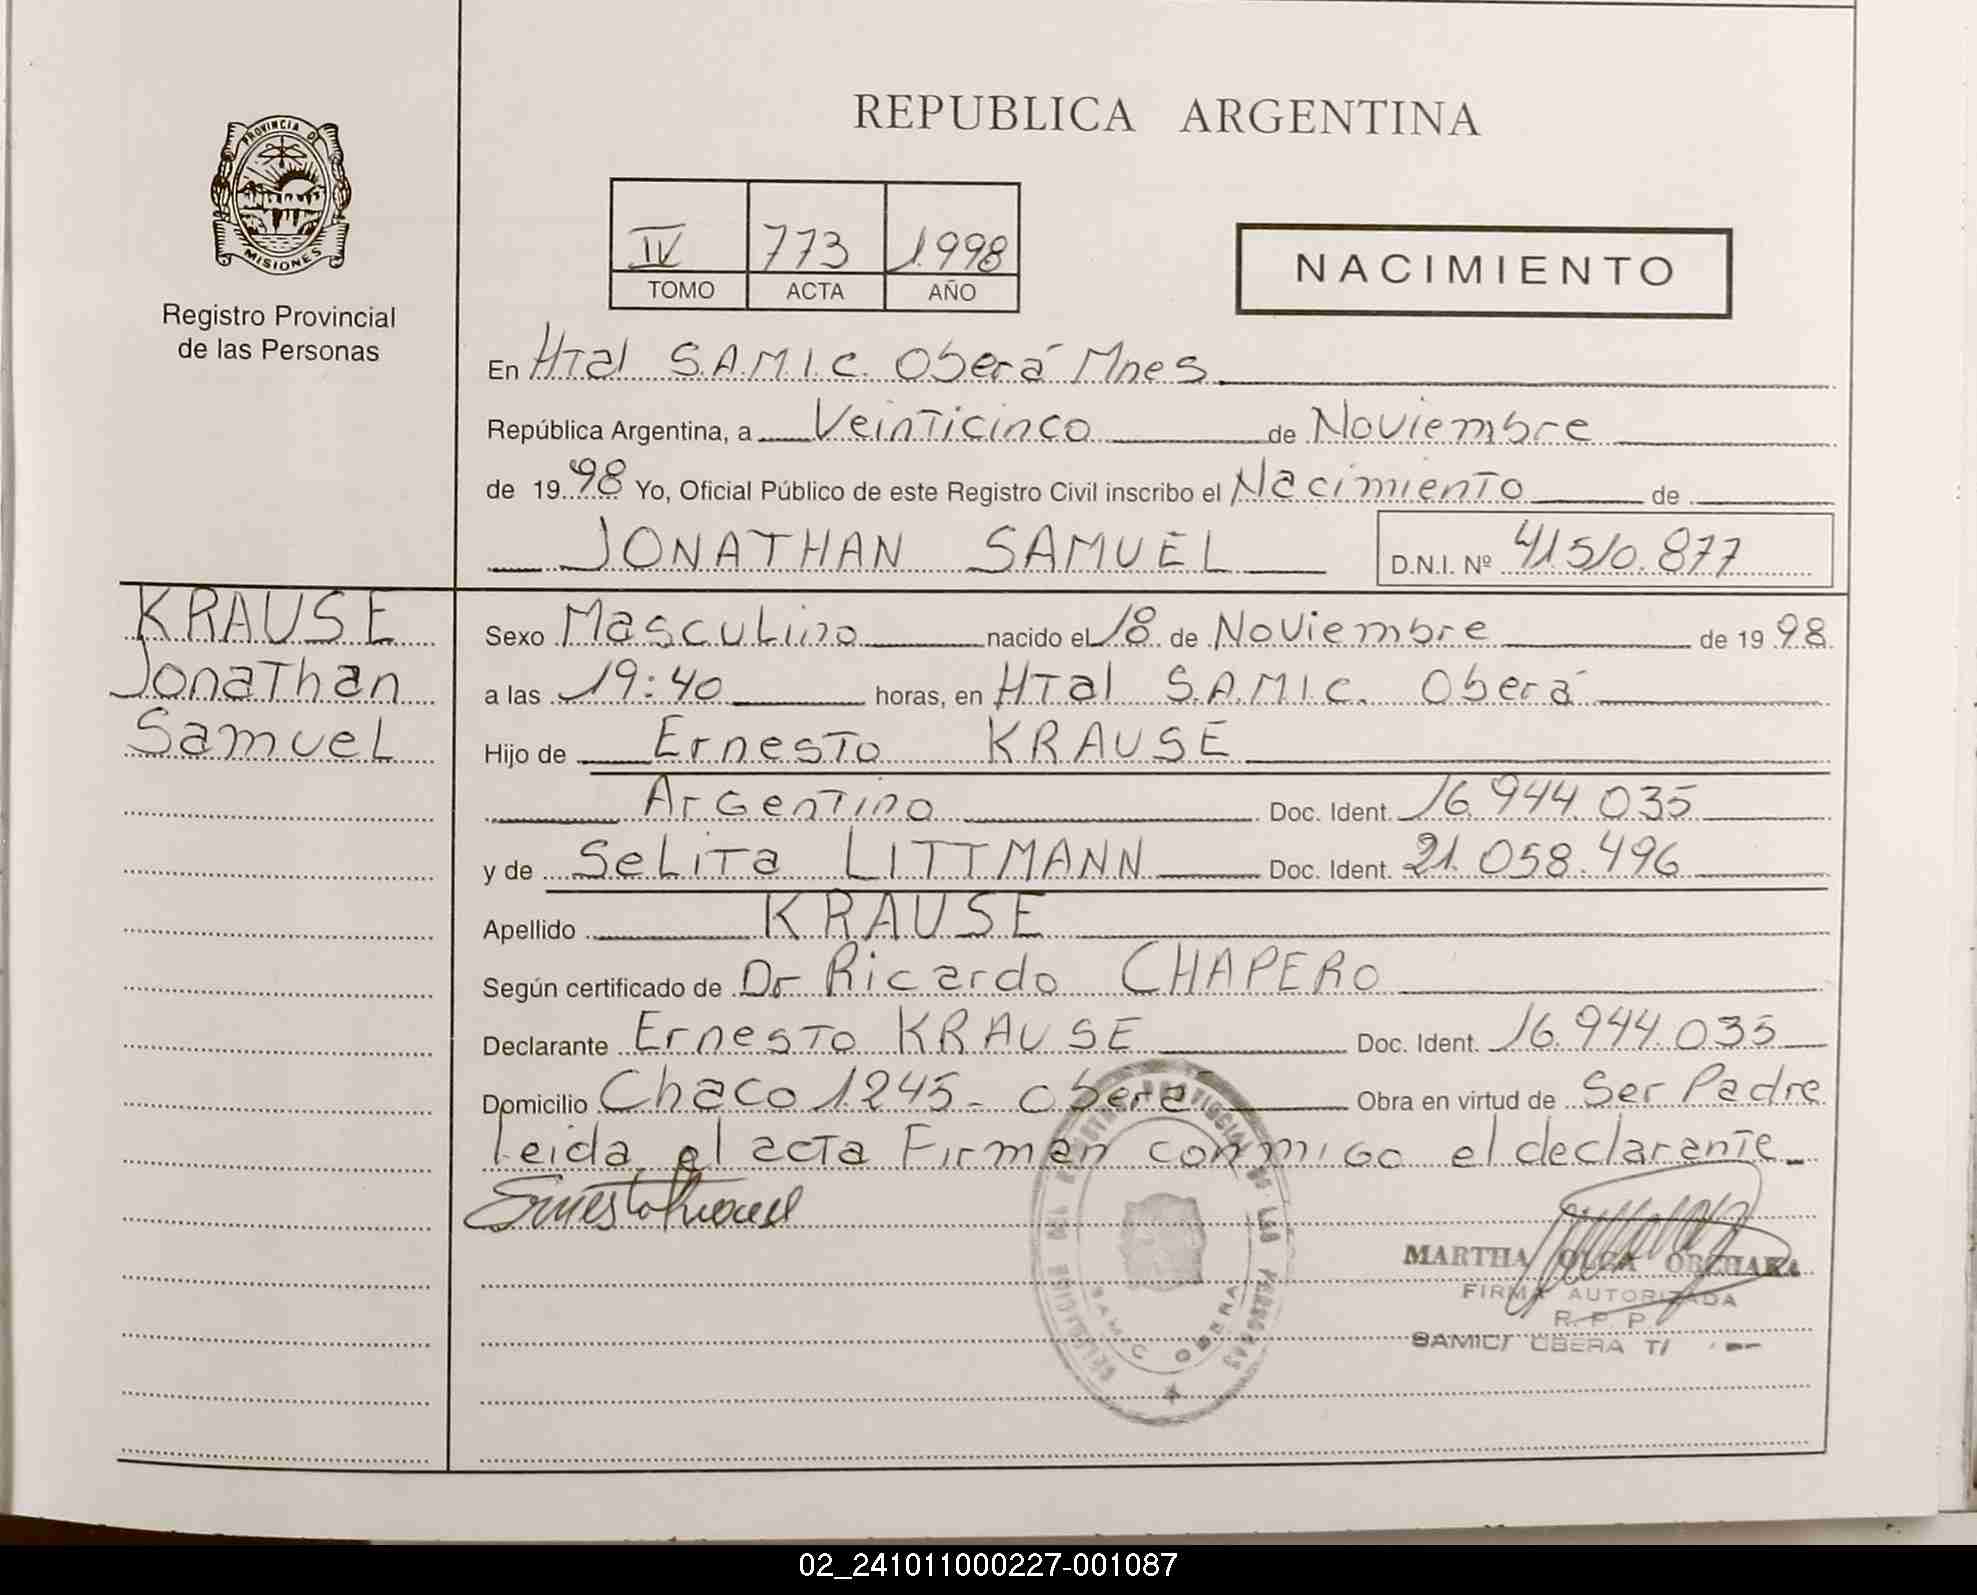 REPUBLICA ARGENTINA
PROVINCIA DE
MISIONES
Registro Provincial
de las Personas
IV 773 1.998
TOMO ACTA AÑO
NACIMIENTO
En Htal S.A.M.I.C. Oberá Mnes
República Argentina, a Veinticinco de Noviembre
de 19 98 Yo, Oficial Público de este Registro Civil inscribo el Nacimiento de
JONATHAN SAMUEL D.N.I. Nº 41.510.877
KRAUSE
Jonathan
Samuel
Sexo Masculino nacido el 18 de Noviembre de 19 98
a las 19:40 horas, en Htal S.A.M.I.C. Oberá
Hijo de Ernesto KRAUSE
Argentino Doc. Ident. 16.944.035
y de Selita LITTMANN Doc. Ident. 21.058.496
Apellido KRAUSE
Según certificado de Dr Ricardo CHAPERO
Declarante Ernesto KRAUSE Doc. Ident. 16.944.035
Domicilio Chaco 1.245 - Oberá Obra en virtud de Ser Padre
Leida el acta Firman conmigo el declarante
Ernesto Krause
MARTHA OLGA
FIRMA AUTORIZADA
R. P. P.
SAMIC/ OBERA
DE LAS PERSONAS
SAMIC OBERA
02_241011000227-001087